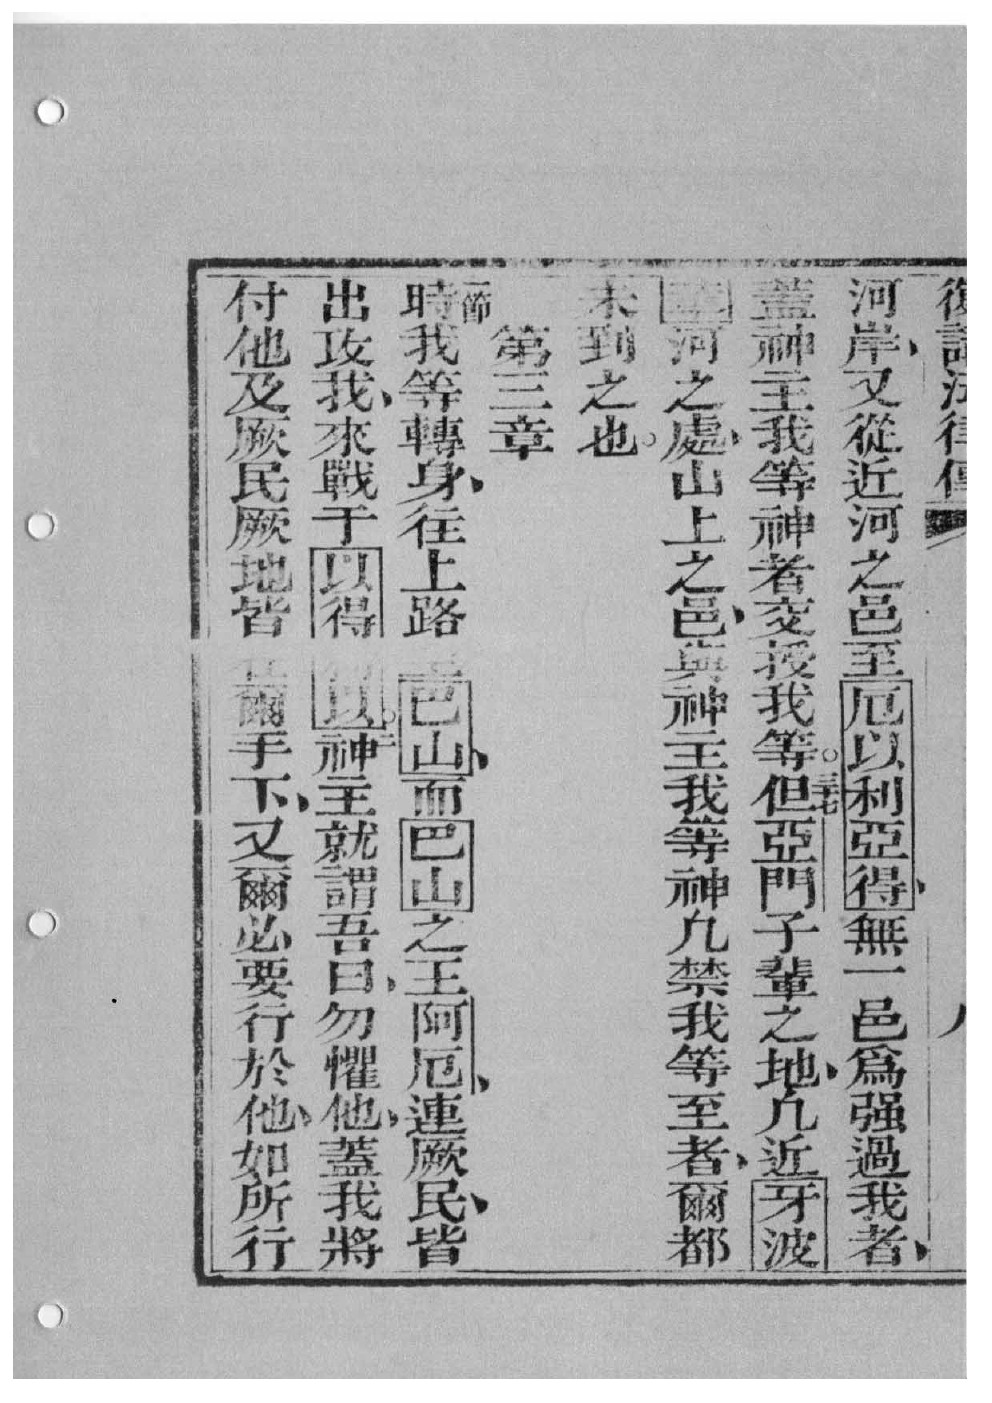 復講法律傳
八
河岸、又從近河之邑至厄以利亞得、無一邑爲强過我者、
蓋神主我等神者交授我等。三七但亞門子輩之地、凢近牙波
河之處、山上之邑、與神主我等神凢禁我等至者、爾都
未到之也。
第三章
一節時我等轉身、往上路至巴山、而巴山之王阿厄、連厥民、皆
出攻我、來戰于以得以。二神主就謂吾曰、勿懼他、蓋我將
付他及厥民厥地皆在爾手下、又爾必要行於他、如所行